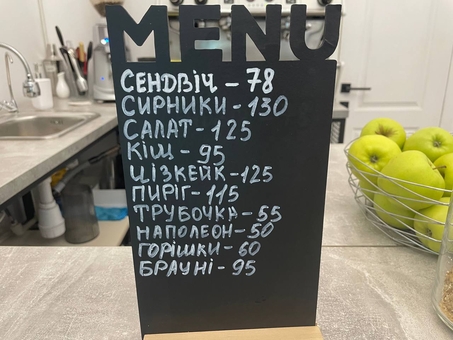 MENU
СЕНДВІЧ - 78
СИРНИКИ - 130
САЛАТ - 125
КІШ - 95
ЦІЗКЕЙК - 125
ПИРІГ - 115
ТРУБОЧКА - 55
НАПОЛЕОН - 50
ГОРІШКИ - 60
БРАУНІ - 95